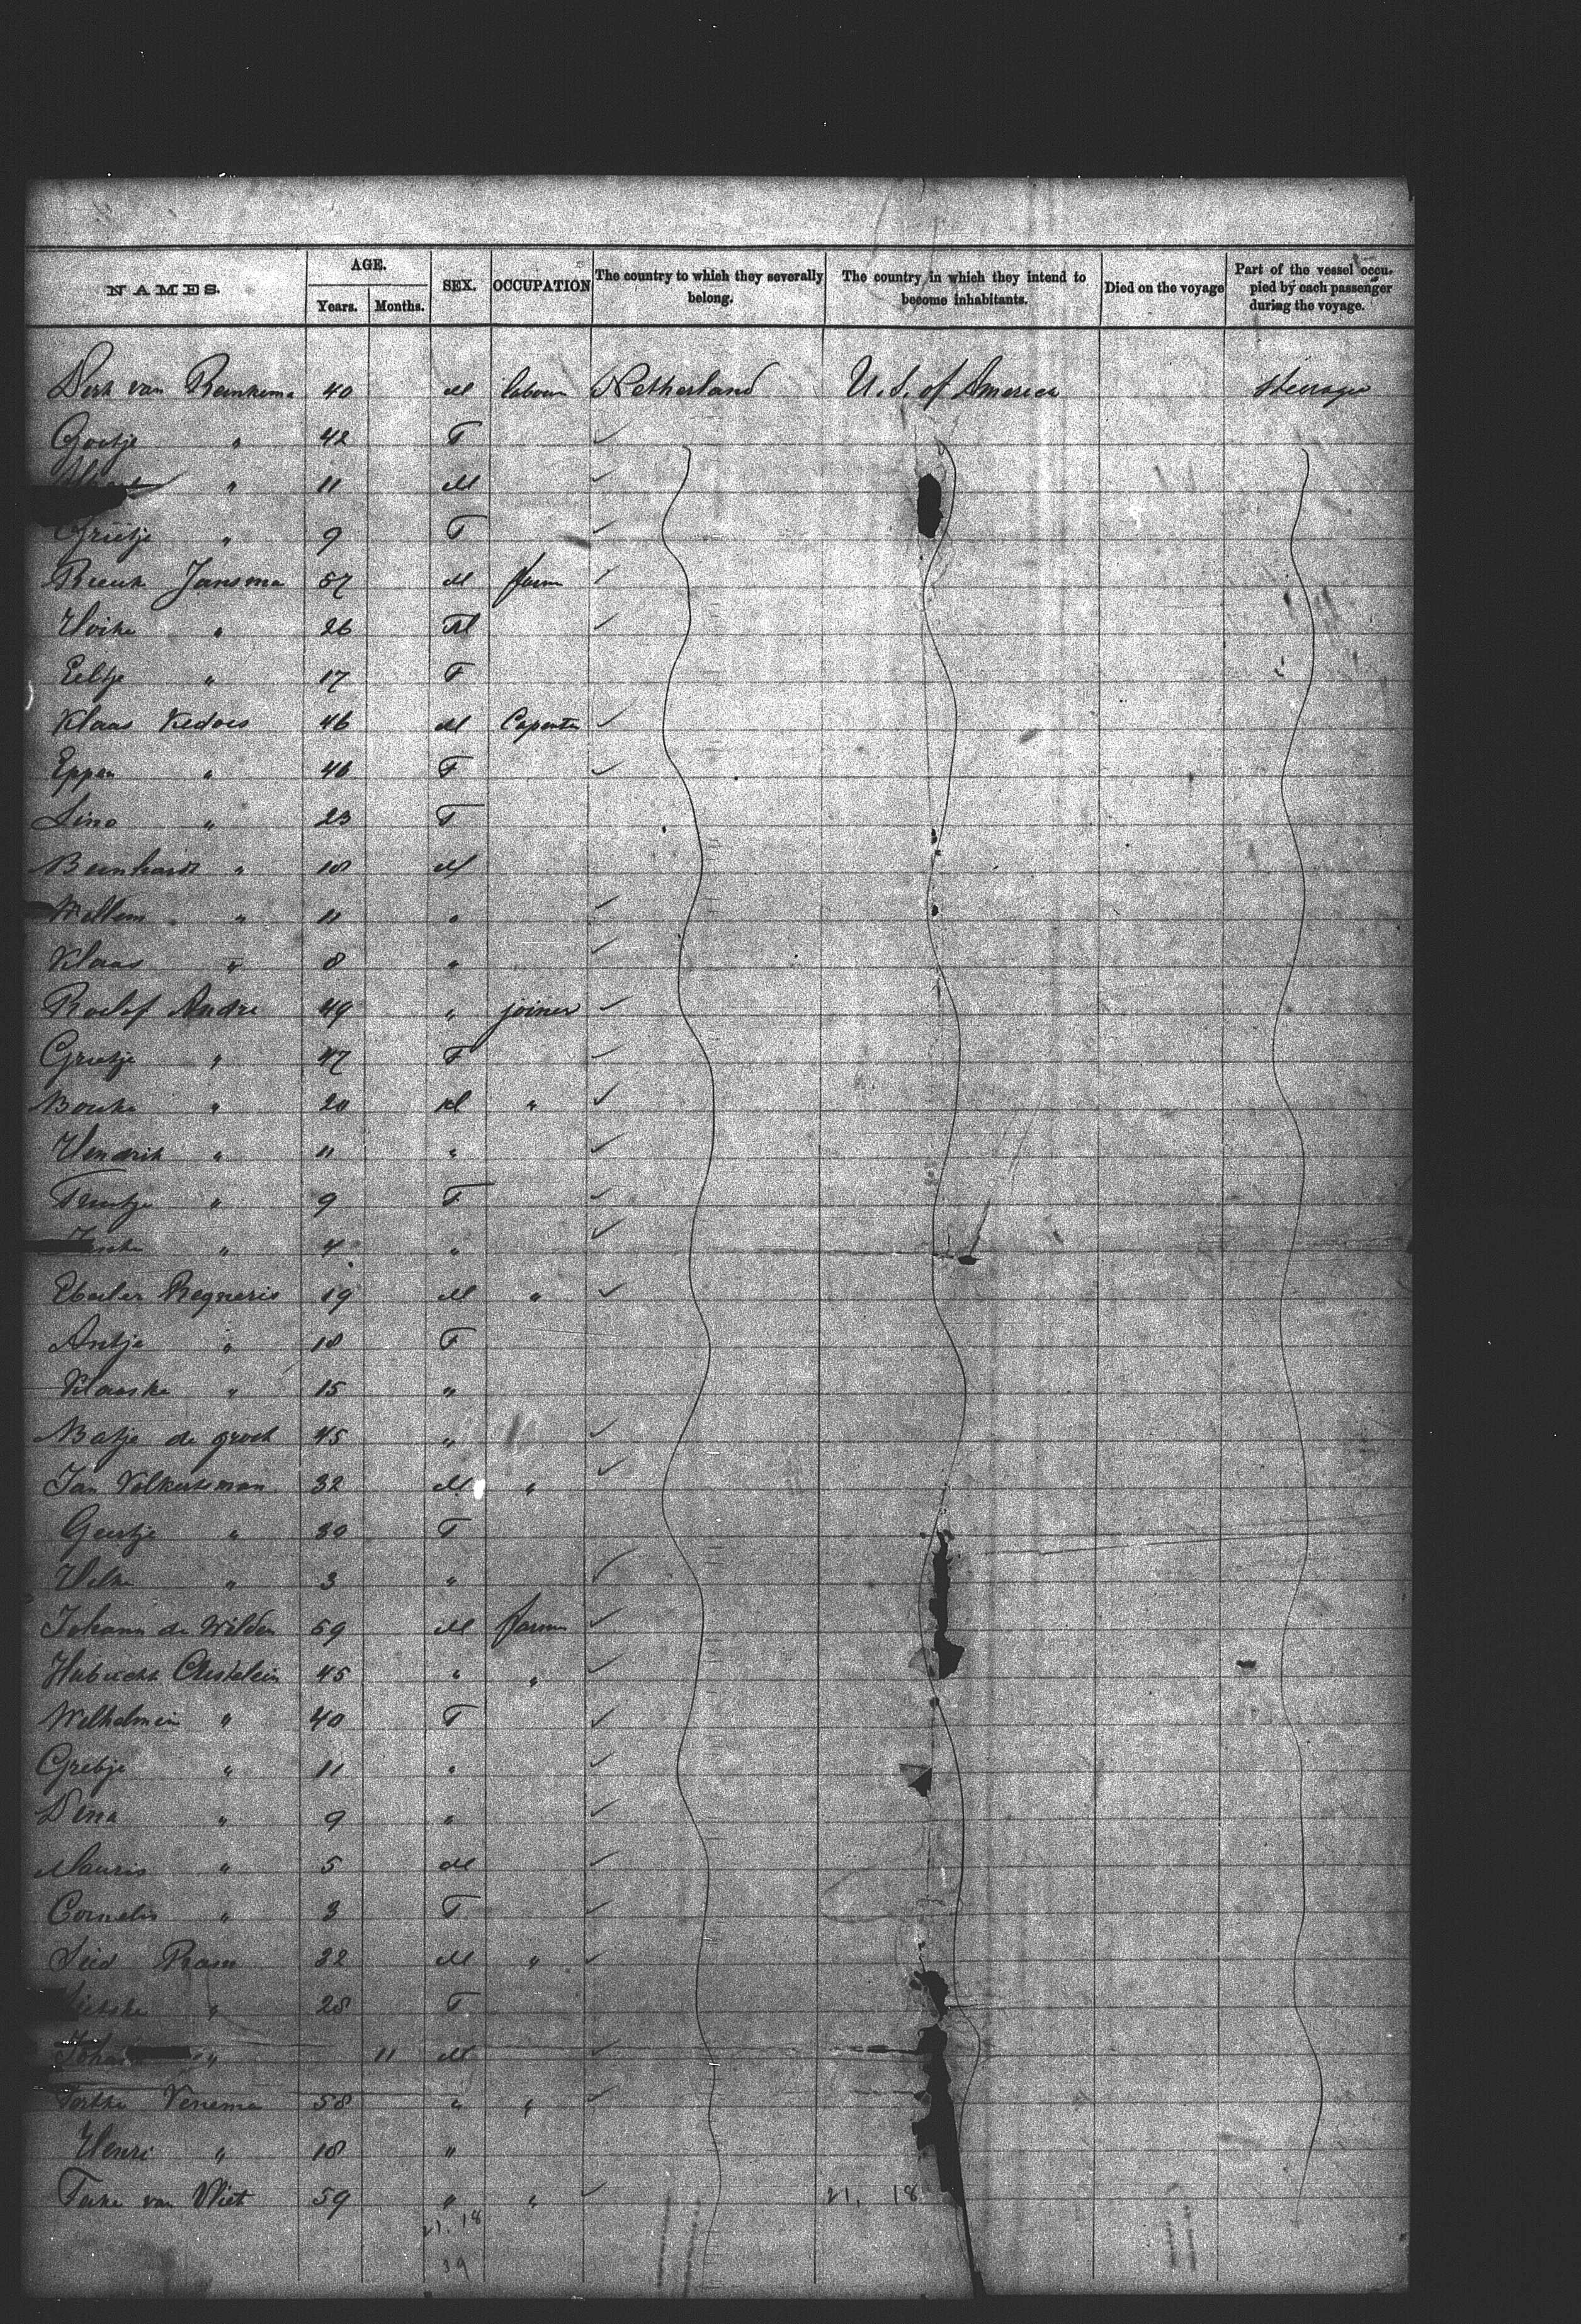 NAMES. AGE. SEX. OCCUPATION The country to which they severally belong. The country in which they intend to become inhabitants. Died on the voyage Part of the vessel occupied by each passenger during the voyage.
Years. Months.
Derk van Reinkema 40 M labour Netherland U.S. of America steerage
Geertje " 42 F
" 11 M
Grietje " 9 F
Jansma 57 M farm
" 26 M
Eeltje " 17 F
Klaas Kedoes 46 M Capenter
Eppen " 46 F
Lina " 23 F
Bernhardt " 18 M
Willem " 11 "
Klaas " 8 "
Roelof Andre 49 " joiner
Grietje " 47 F
Bouke " 20 M "
Hendrik " 11 "
" 9 F
" 4 "
Regneris 19 M "
Antje " 18 F
Klaaske " 15 "
Batje de groot 45 "
Jan Volkertsman 32 M "
Geertje " 30 F
" 3 "
Johann de Wilden 59 M farm
45 " "
Wilhelmin " 40 F
Gretje " 11 "
Dena " 9 "
Mauris " 5 M
Cornelis " 3 F
32 M "
" 28 F
" 11 M
Venema 58 " "
Henri " 18 "
van Vliet 59 " " 21. 18
21. 18
39